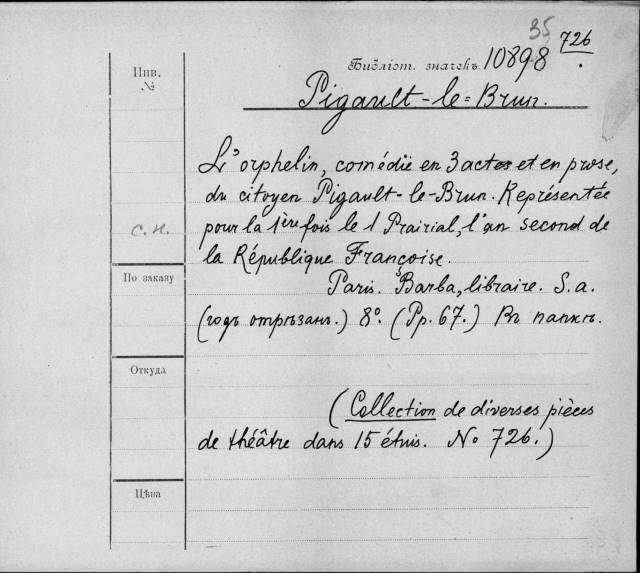 35
726
Библіот. значекъ 10898
Инв.
№
Pigault-le-Brun.
L'orphelin, comédie en 3 actes et en prose,
du citoyen Pigault-le-Brun. Représentée
с.н.
pour la 1ère fois le 1 Prairial, l'an second de
la République Françoise.
По заказу
Paris. Barba, libraire. S.a.
(годъ отрѣзанъ.) 8º. (Pp. 67.) Въ папкѣ.
Откуда
(Collection de diverses pièces
de théâtre dans 15 étuis. No 726.)
Цѣна